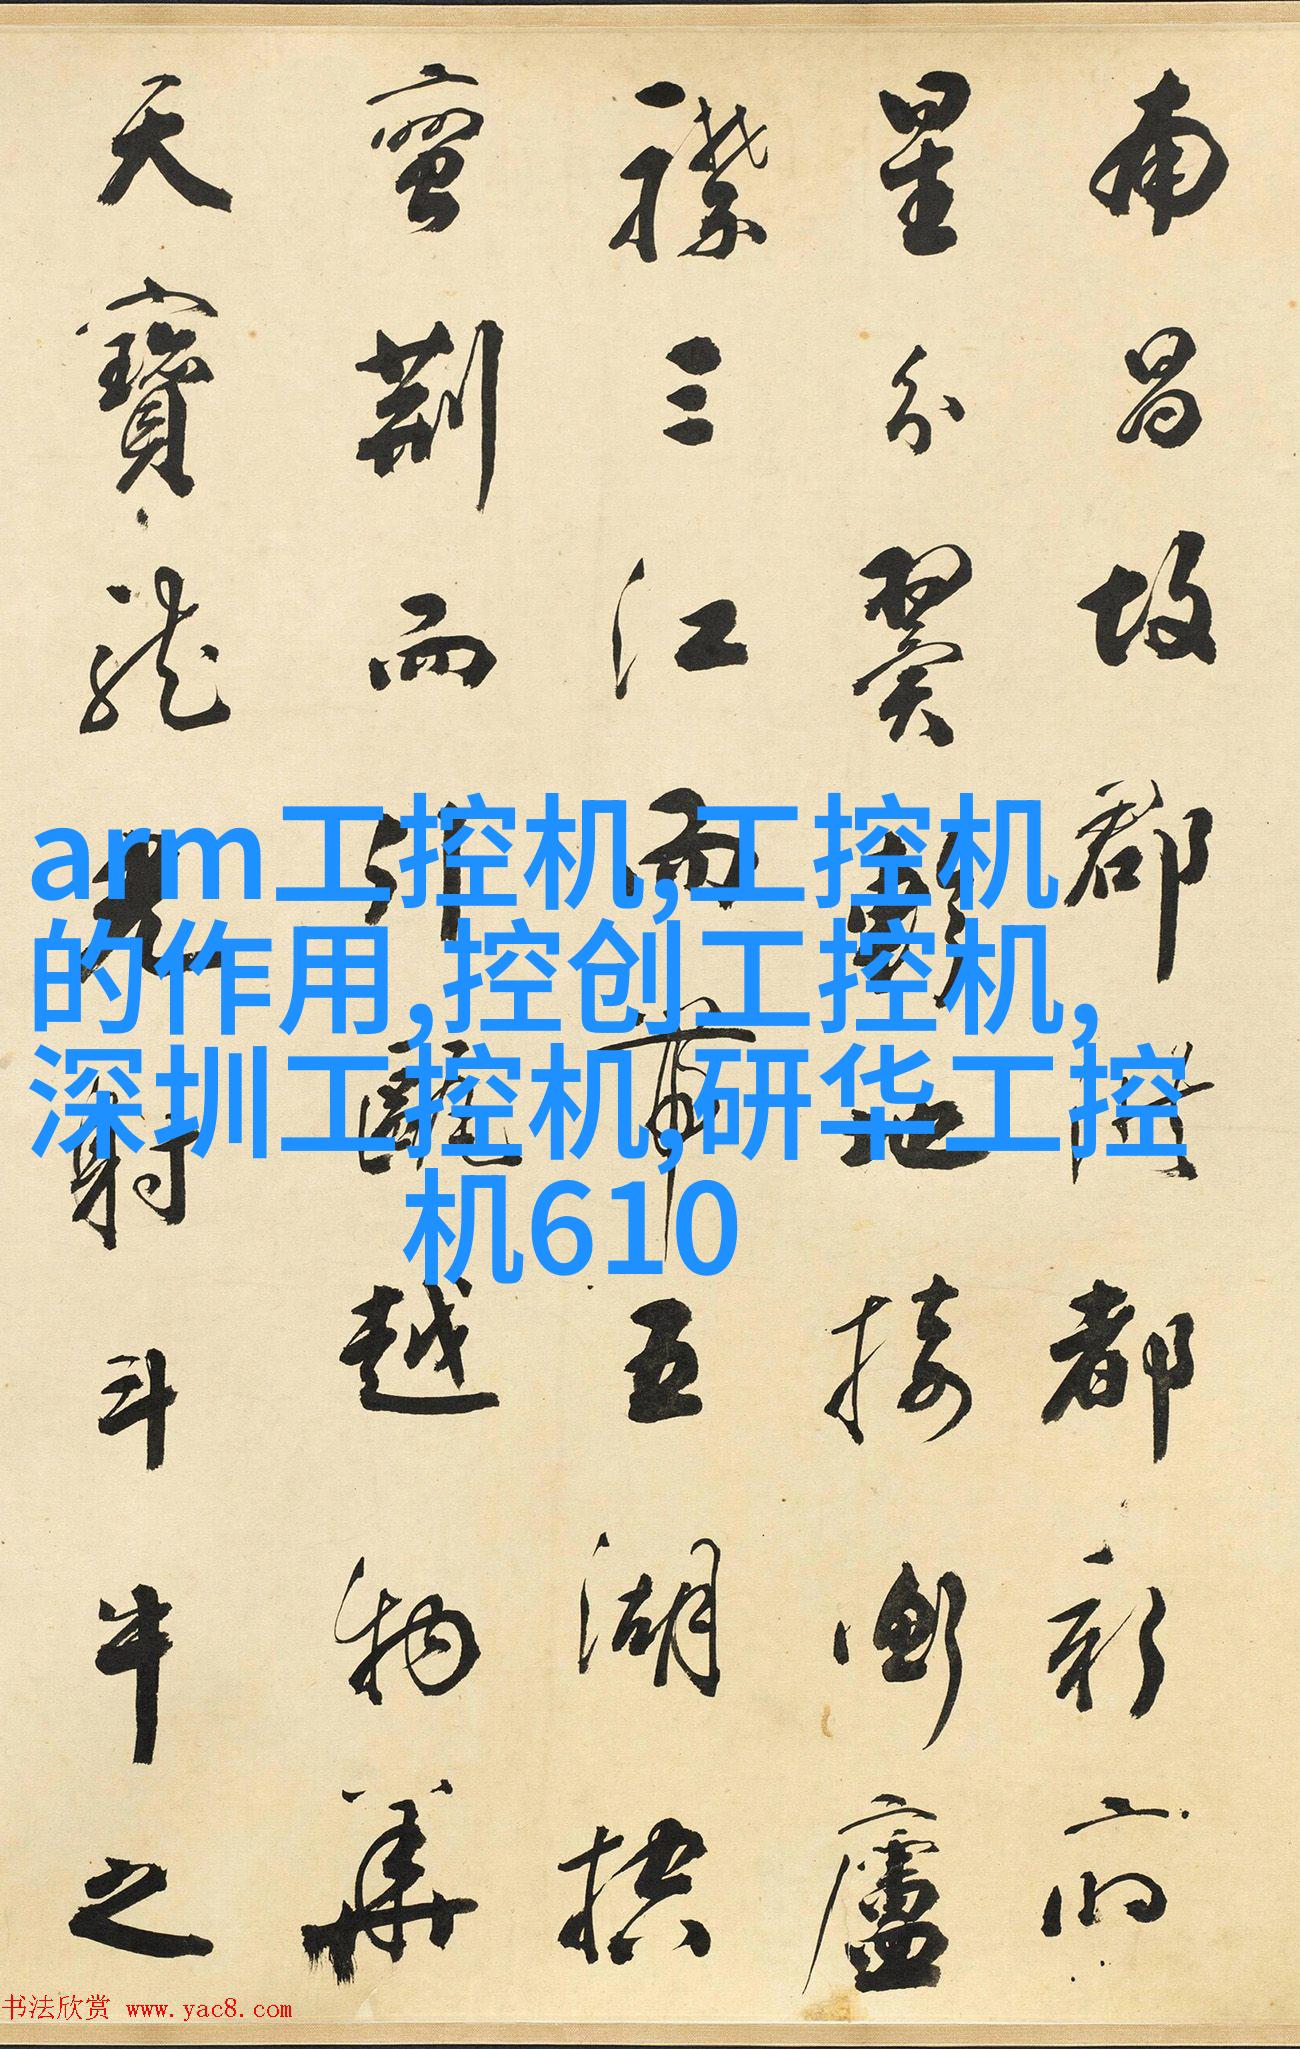 南昌故郡洪都新府
星分翼軫地接衡廬
襟三江而帶五湖控
蠻荆而引甌越物華
天寶龍光射斗牛之
arm工控机,工控机
的作用,控创工控机,
深圳工控机,研华工控
机610
书法欣赏 www.yac8.com